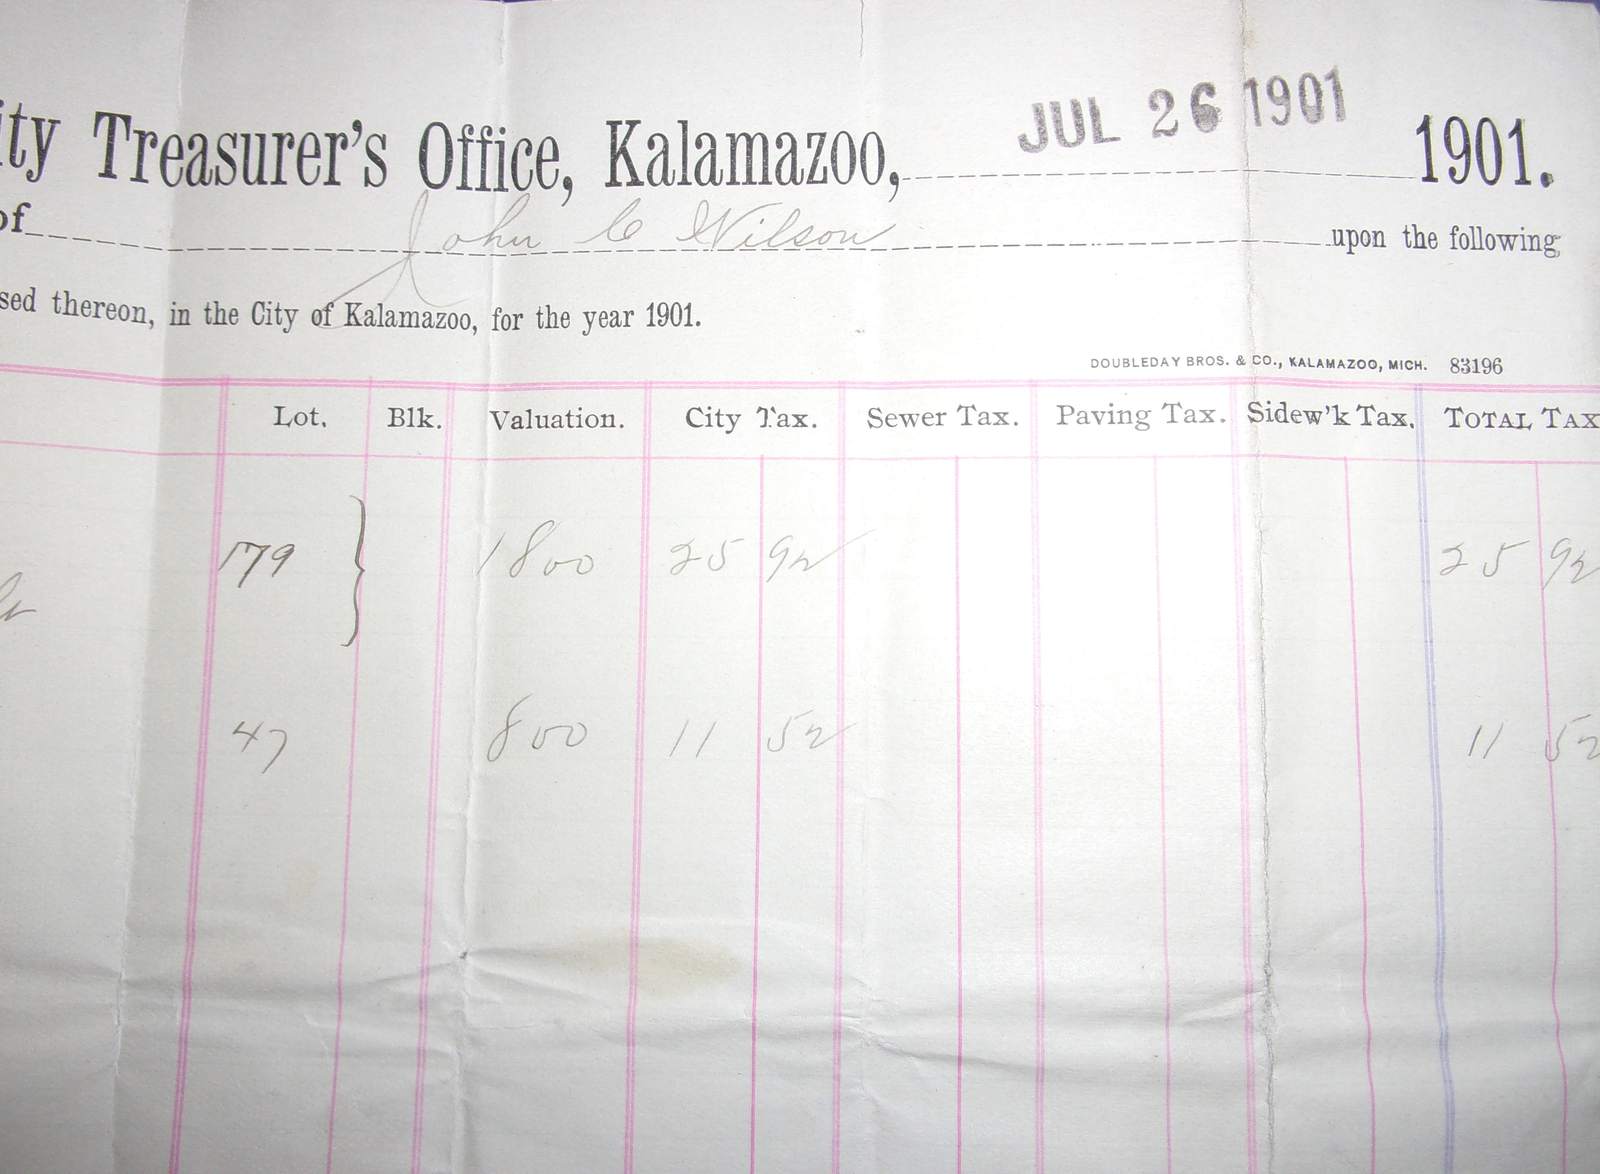 ity Treasurer's Office, Kalamazoo, JUL 26 1901 1901.
of John C Wilson upon the following
sed thereon, in the City of Kalamazoo, for the year 1901.
DOUBLEDAY BROS. & CO., KALAMAZOO, MICH. 83196
Lot. Blk. Valuation. City Tax. Sewer Tax. Paving Tax. Sidew'k Tax. TOTAL TAX
179 } 1800 25 92 25 92
47 800 11 52 11 52